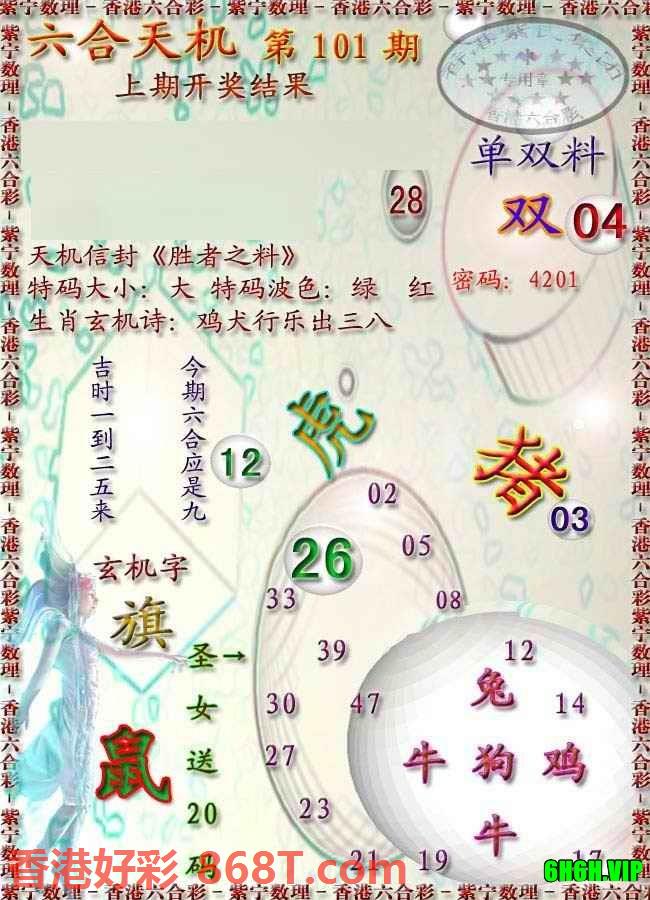 紫宁数理－香港六合彩－紫宁数理－香港六合彩－紫宁数理－香港六合彩
六合天机 第 101 期
上期开奖结果
专用章
香港六合彩
单双料
28
双 04
天机信封《胜者之料》
特码大小：大 特码波色：绿 红
密码：4201
生肖玄机诗：鸡犬行乐出三八
今期六合应是九
吉时一到二五来
12
虎
猪
03
02
26
05
33
08
玄机字
旗
圣→
女
送
20
码
鼠
39
12
30
47
兔
14
27
牛 狗 鸡
23
牛
21
19
17
香港好彩 868T.com
6H6H.VIP
紫宁数理－香港六合彩－紫宁数理－香港六合彩－紫宁数理－香港六合彩